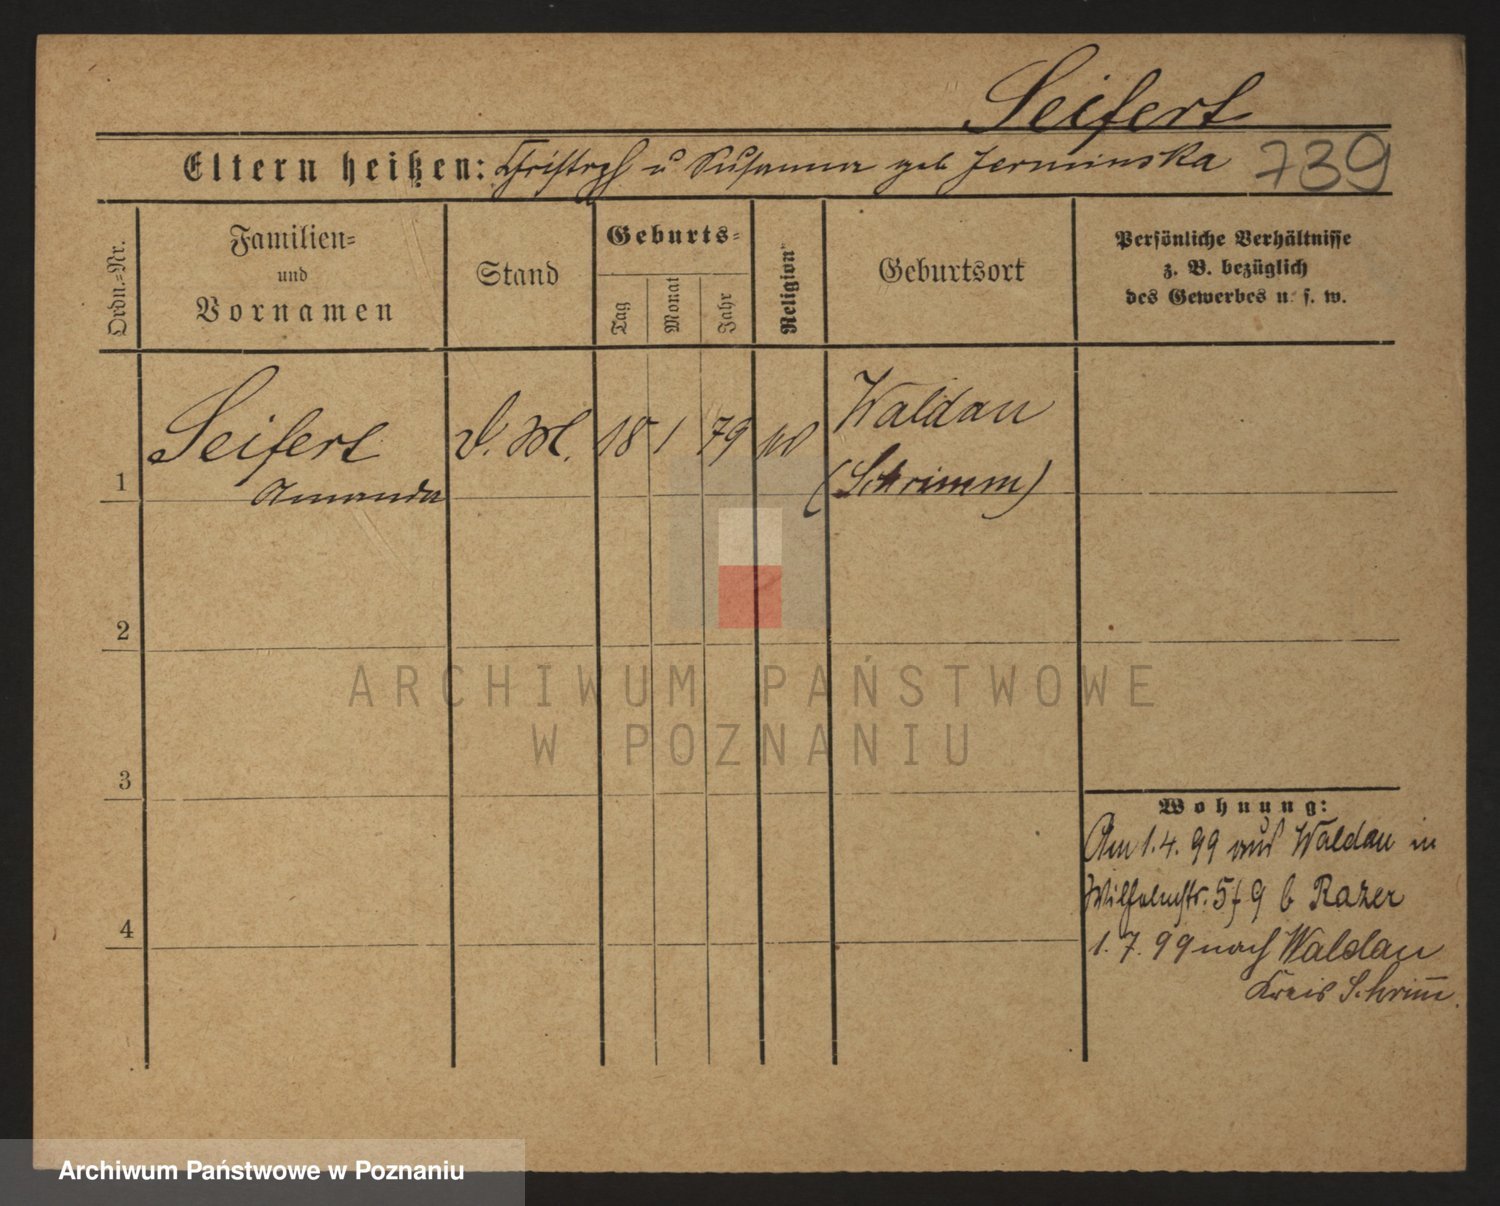 Seifert
Eltern heißen: Christoph u Susanna geb Jerminska 739
Ordn.=Nr.
Familien=
und
Vornamen
Stand
Geburts=
Tag
Monat
Jahr
Religion
Geburtsort
Persönliche Verhältnisse
z. B. bezüglich
des Gewerbes u. s. w.
1
Seifert
Amanda
D. M.
18
1
79
Waldau
(Schrimm)
2
3
4
Wohnung:
Am 1. 4. 99 aus Waldau in
Wilhelmstr. 9 b Razer
1. 7. 99 nach Waldau
Kreis Schrim̄
ARCHIWUM PAŃSTWOWE
W POZNANIU
Archiwum Państwowe w Poznaniu